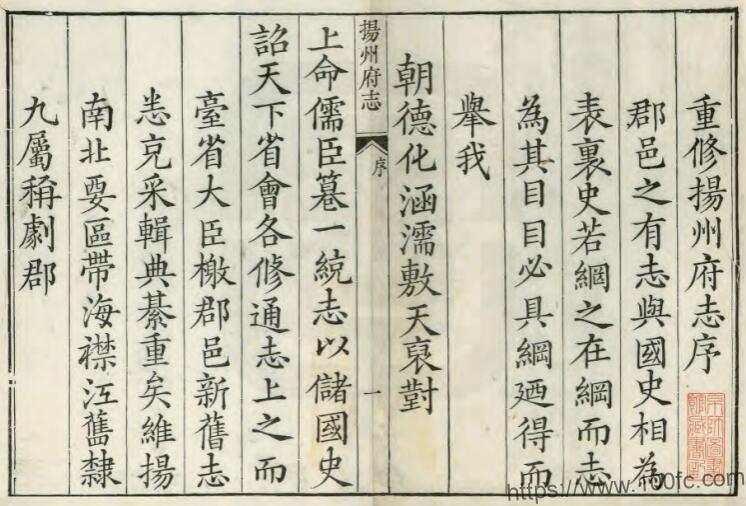 重修揚州府志序
郡邑之有志與國史相為
表裏史若綱之在綱而志
為其目目必具綱廼得而
舉我
朝德化涵濡敷天裒對
揚州府志
序
一
上命儒臣纂一統志以儲國史
詔天下省會各修通志上之而
臺省大臣檄郡邑新舊志
悉克采輯典綦重矣維揚
南北要區帶海襟江舊隸
九屬稱劇郡
京師圖書館藏書印
https://www.100fc.com